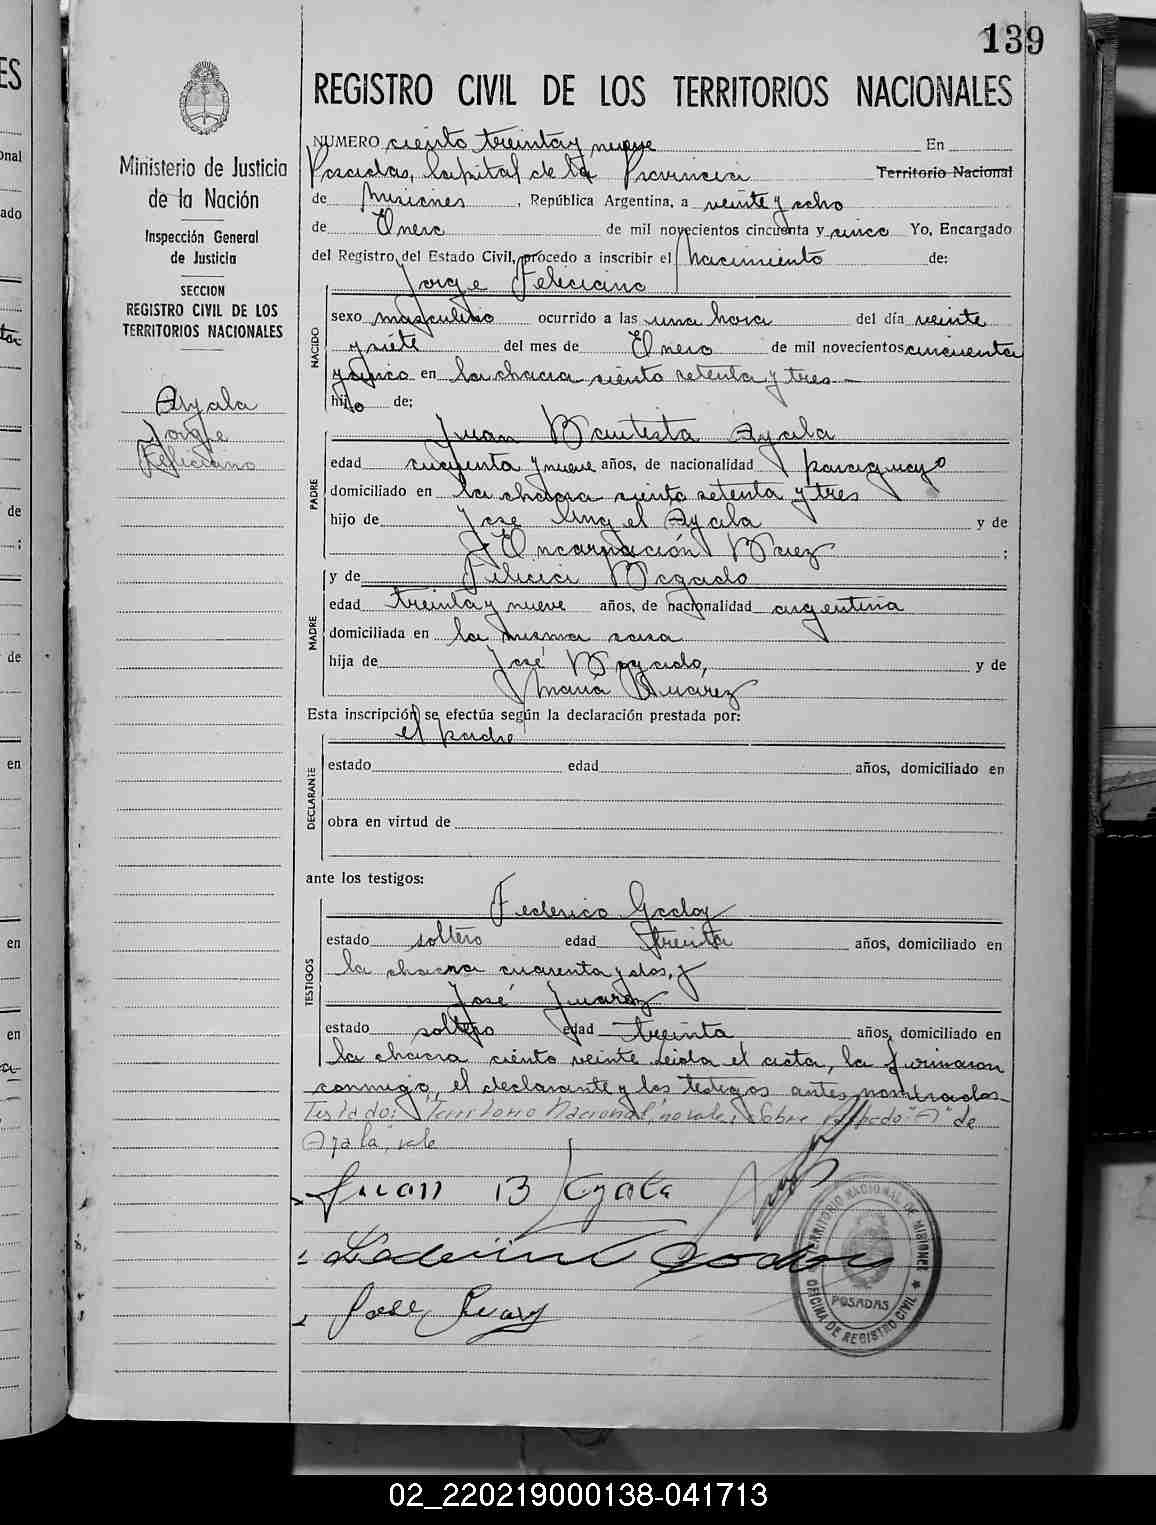 139
REGISTRO CIVIL DE LOS TERRITORIOS NACIONALES
Ministerio de Justicia
de la Nación
Inspección General
de Justicia
SECCION
REGISTRO CIVIL DE LOS
TERRITORIOS NACIONALES
Ayala
Jorge
Feliciano
NUMERO ciento treinta y nueve En
Posadas, Capital de la Provincia Territorio Nacional
de Misiones, República Argentina, a veinte y ocho
de Enero de mil novecientos cincuenta y cinco Yo, Encargado
del Registro del Estado Civil, procedo a inscribir el Nacimiento de:
Jorge Feliciano
NACIDO
sexo masculino ocurrido a las una hora del día veinte
y siete del mes de Enero de mil novecientos cincuenta
y cinco en la chacra ciento setenta y tres
hijo de;
Juan Bautista Ayala
PADRE
edad cincuenta y nueve años, de nacionalidad paraguayo
domiciliado en la chacra ciento setenta y tres
hijo de José Angel Ayala y de
Encarnación Baez ;
y de Felicia Bogado
MADRE
edad treinta y nueve años, de nacionalidad argentina
domiciliada en la misma casa
hija de José Bogado, y de
María Suarez
Esta inscripción se efectúa según la declaración prestada por:
el padre
DECLARANTE
estado edad años, domiciliado en
obra en virtud de
ante los testigos:
Federico Godoy
TESTIGOS
estado soltero edad treinta años, domiciliado en
la chacra cuarenta y dos, y
José Juarez
estado soltero edad treinta años, domiciliado en
la chacra ciento veinte leida el acta, la firmaron
conmigo, el declarante y los testigos antes nombrados
Testado: "Territorio Nacional", no vale; Sobre raspado "A" de
Ayala, vale
Juan B Ayala
Federico Godoy
Jose Juarez
TERRITORIO NACIONAL DE MISIONES
POSADAS
OFICINA DE REGISTRO CIVIL
02_220219000138-041713